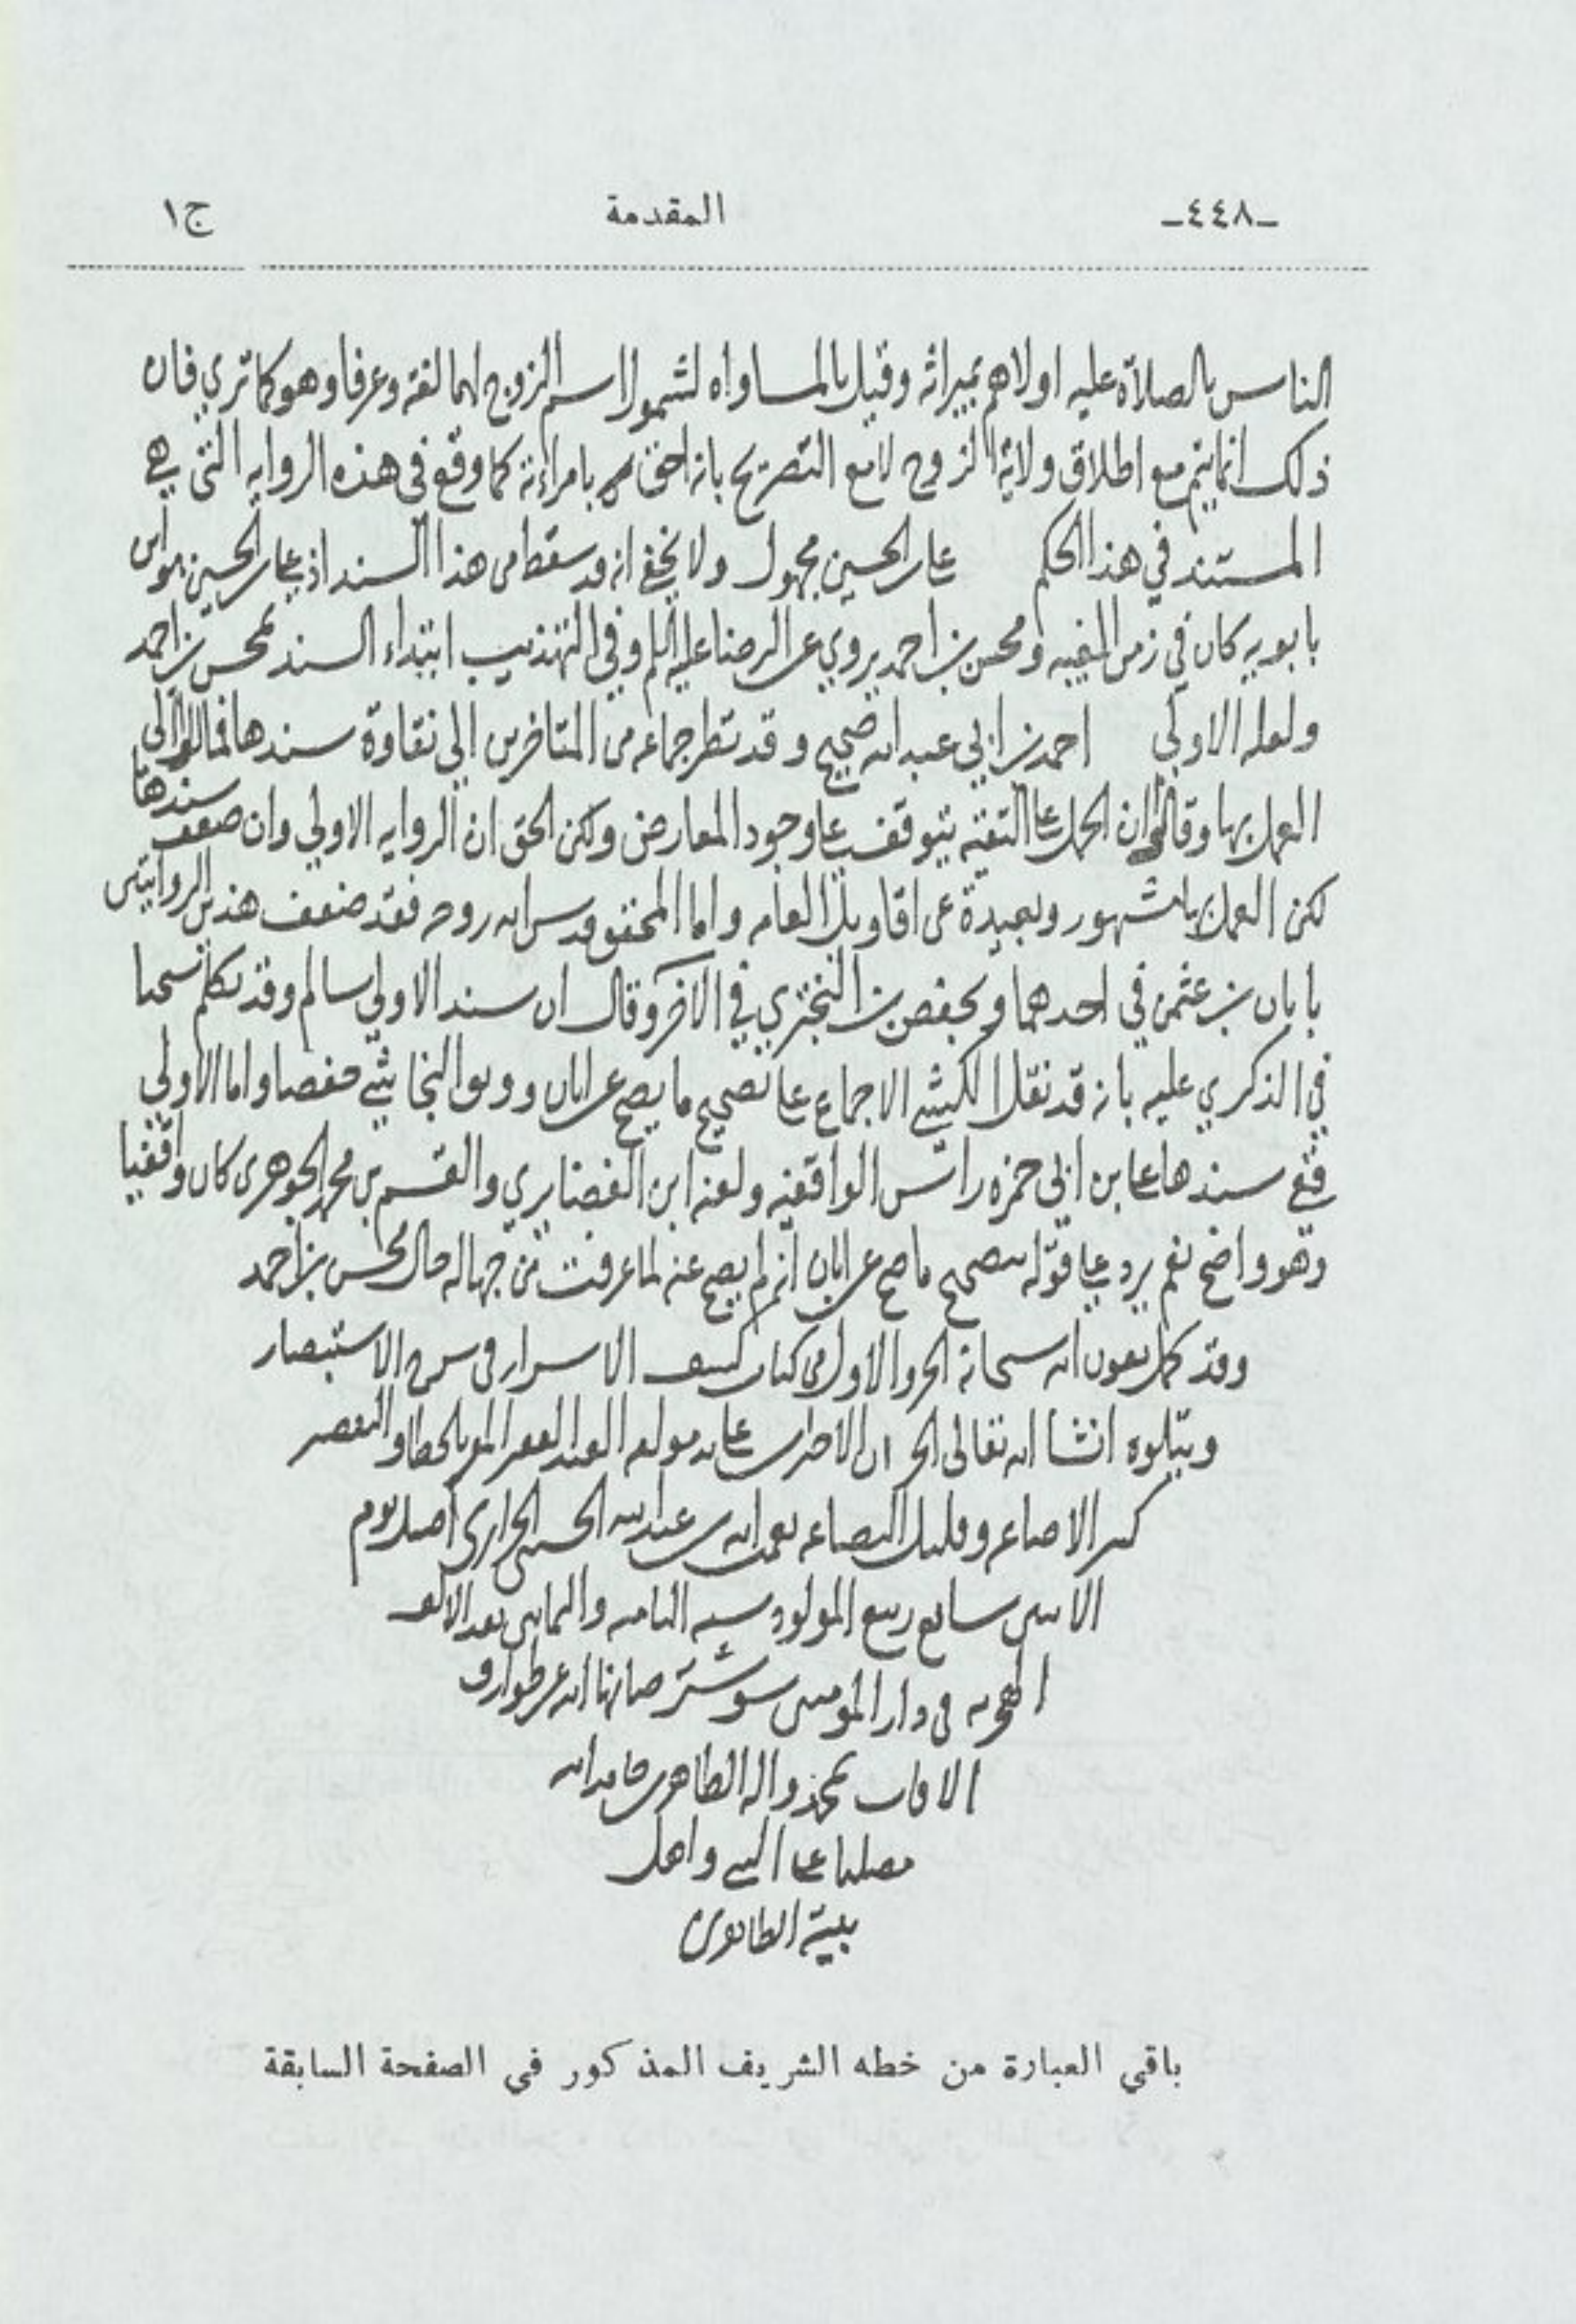 ـ٤٤٨ـ
المقدمة
ج١
الناس بالصلاة عليه اولاهم بميراثه وقيل بالمساواه لشمول اسم الزوج لهما لغة وعرفا وهو كما تري فان
ذلك انما يتم مع اطلاق ولاية الزوج لا مع التصريح بانه احق بامراته كما وقع في هذه الروايه التي هي
المستند في هذا الحكم علي بن الحسين مجهول ولا يخفي انه قد سقط من هذا السند اذ علي بن الحسين بن
بابويه كان في زمن الغيبه ومحسن بن احمد يروي عن الرضا عليه السلام وفي التهذيب ابتداء السند بمحسن بن احمد
ولعله الاولي احمد بن ابي عبد الله صحيح وقد نظر جماعه من المتاخرين الي نقاوة سندها فمالوا الي
العمل بها وقالوا ان الحمل علي التقيه يتوقف علي وجود المعارض ولكن الحق ان الروايه الاولي وان ضعف سندها
لكن العمل بها مشهور وبعيدة عن اقاويل العامه واما المحقق قدس الله روحه فقد ضعف هذين الروايتين
بابان بن عثمن في احدهما وبحفص بن البختري في الاخر وقال ان سند الاولي سالم وقد تكلم شيخنا
في الذكري عليه بانه قد نقل الكشي الاجماع علي تصحيح ما يصح عن ابان ووثق النجاشي حفصا واما الاولي
ففي سندها علي بن ابي حمزه راس الواقفيه ولعنه ابن الغضايري والقسم بن محمد الجوهري كان واقفيا
وهو واضح نعم يرد علي قوله بتصحيح ما صح عن ابان انه لم يصح عنه لما عرفت من جهالة حال محسن بن احمد
وقد كمل بعون الله سبحانه الجزو الاول من كتاب كشف الاسرار في شرح الاستبصار
ويتلوه انشا الله تعالى الجزء علي يد مولفه العبد الفقير المقر بالخطا والتقصير
كثير الاضاعه وقليل البضاعه نعمت الله بن عبد الله الحسيني الجزايري اصيل يوم
الاثنين سابع ربيع المولود سنه الثامنه والثمانين بعد الالف
الهجريه في دار المومنين شوشتر صانها الله عن طوارق
الافات بمحمد واله الطاهرين حامدا لله
مصليا علي النبي واهل
بيته الطاهرين
باقي العبارة من خطه الشريف المذكور في الصفحة السابقة